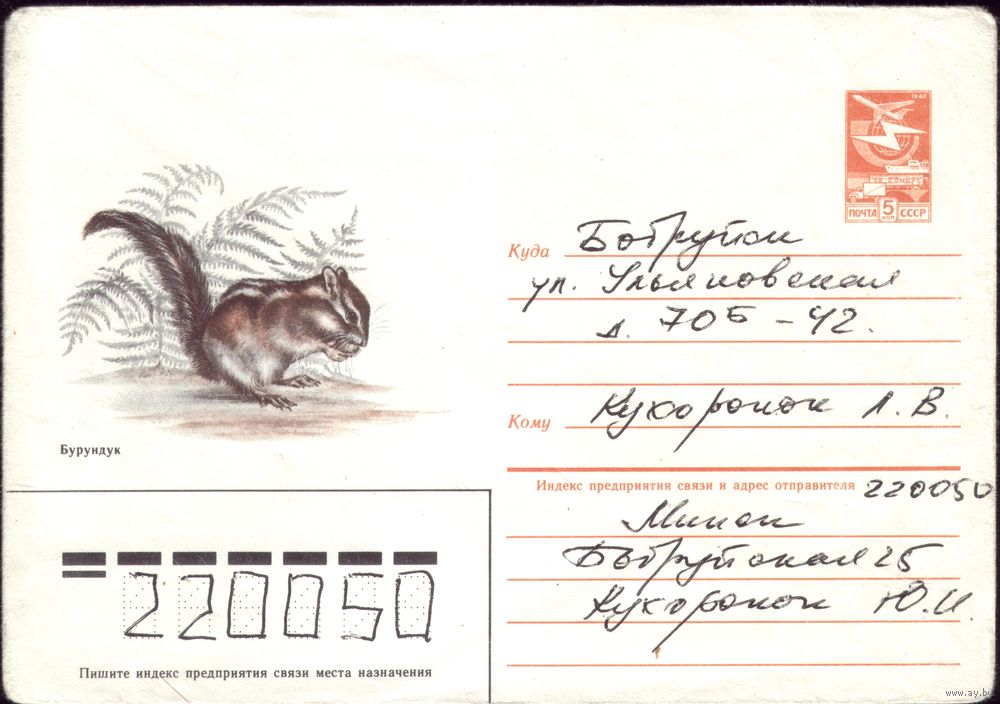 1982
ПОЧТА 5 КОП СССР
Куда Бобруйск
ул. Ульяновская
д. 70Б - 42.
Кому Кухоронок Л. В.
Бурундук
Индекс предприятия связи и адрес отправителя 220050
Минск
Бобруйская 25
Кухоронок Ю. И.
220050
Пишите индекс предприятия связи места назначения
www.ay.by